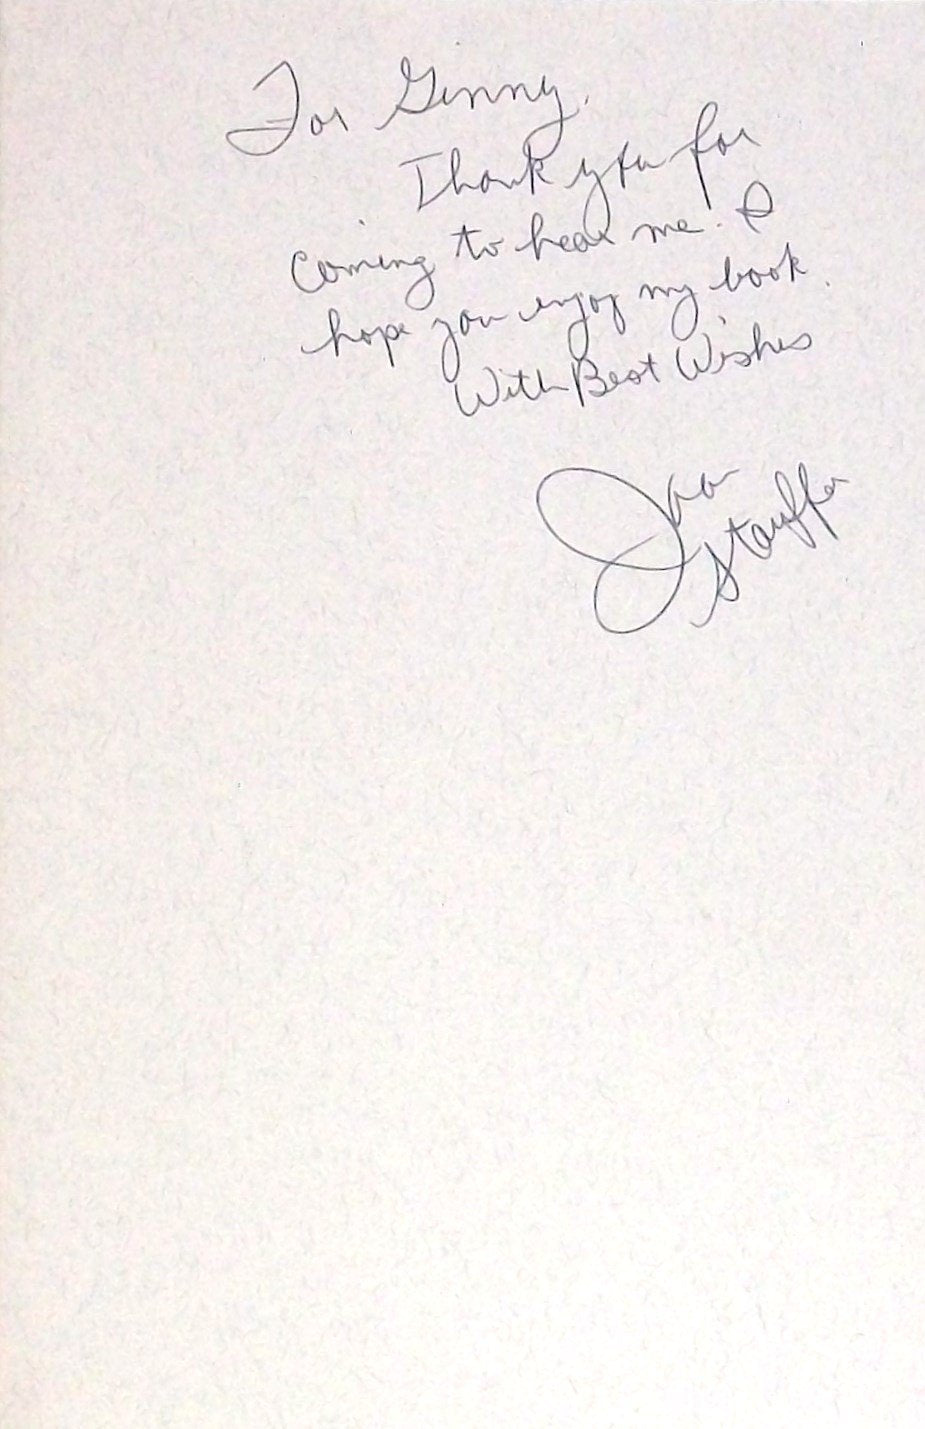 For Ginny,
Thank you for
coming to hear me. I
hope you enjoy my book.
With Best Wishes
Stauffer